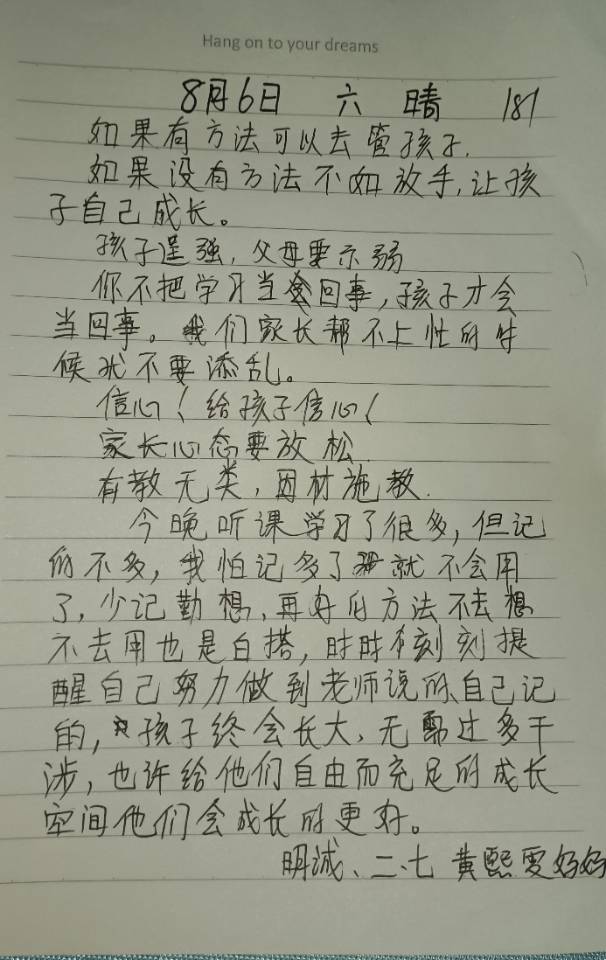 Hang on to your dreams
8月6日 六 晴 181
如果有方法可以去管孩子.
如果没有方法不如放手,让孩
子自己成长。
孩子逞强,父母要示弱
你不把学习当回事,孩子才会
当回事。我们家长帮不上忙的时
候就不要添乱。
信心!给孩子信心!
家长心态要放松.
有教无类,因材施教.
今晚听课学习了很多,但记
的不多,我怕记多了就不会用
了,少记勤想,再好的方法不去想
不去用也是白搭,时时刻刻提
醒自己努力做到老师说的、自己记
的,孩子终会长大、无需过多干
涉,也许给他们自由而充足的成长
空间他们会成长的更好。
明诚、二、七 黄熙雯妈妈